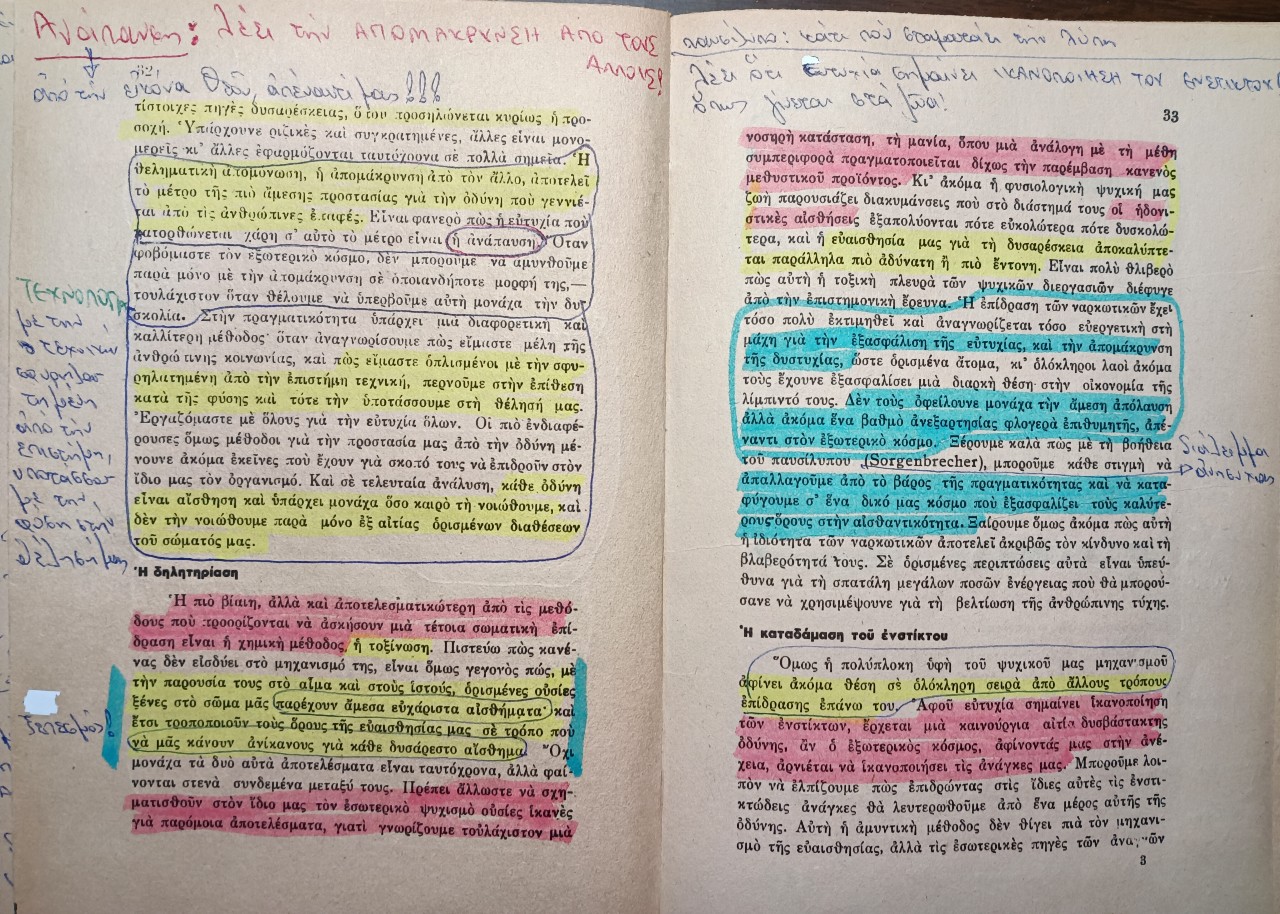 Ἀνάπαυση: λέει τὴν ΑΠΟΜΑΚΡΥΝΣΗ ΑΠΟ ΤΟΥΣ
ΑΛΛΟΥΣ!
ἀπὸ τὴν εἰκόνα Θεοῦ, ἀπέναντί μας!!!
τίστοιχες πηγὲς δυσαρέσκειας, ὅπου προσηλώνεται κυρίως ἡ προ-
σοχή. Ὑπάρχουνε ριζικὲς καὶ συγκρατημένες, ἄλλες εἶναι μονο-
μερεῖς κι’ ἄλλες ἐφαρμόζονται ταυτόχρονα σὲ πολλὰ σημεῖα. Ἡ
θεληματικὴ ἀπομόνωση, ἡ ἀπομάκρυνση ἀπὸ τὸν ἄλλο, ἀποτελεῖ
τὸ μέτρο τῆς πιὸ ἄμεσης προστασίας γιὰ τὴν ὀδύνη ποὺ γεννιέ-
ται ἀπὸ τὶς ἀνθρώπινες ἐπαφές. Εἶναι φανερὸ πὼς ἡ εὐτυχία ποὺ
κατορθώνεται χάρη σ’ αὐτὸ τὸ μέτρο εἶναι ἡ ἀνάπαυση. Ὅταν
φοβόμαστε τὸν ἐξωτερικὸ κόσμο, δὲν μποροῦμε νὰ ἀμυνθοῦμε
παρὰ μόνο μὲ τὴν ἀπομάκρυνση σὲ ὁποιανδήποτε μορφή της,—
τουλάχιστον ὅταν θέλουμε νὰ ὑπερβοῦμε αὐτὴ μονάχα τὴν δυ-
σκολία. Στὴν πραγματικότητα ὑπάρχει μιὰ διαφορετικὴ καὶ
καλλίτερη μέθοδος· ὅταν ἀναγνωρίσουμε πὼς εἴμαστε μέλη τῆς
ἀνθρώπινης κοινωνίας, καὶ πὼς εἴμαστε ὁπλισμένοι μὲ τὴν σφυ-
ρηλατημένη ἀπὸ τὴν ἐπιστήμη τεχνική, περνοῦμε στὴν ἐπίθεση
κατὰ τῆς φύσης καὶ τότε τὴν ὑποτάσσουμε στὴ θέλησή μας.
Ἐργαζόμαστε μὲ ὅλους γιὰ τὴν εὐτυχία ὅλων. Οἱ πιὸ ἐνδιαφέ-
ρουσες ὅμως μέθοδοι γιὰ τὴν προστασία μας ἀπὸ τὴν ὀδύνη μέ-
νουνε ἀκόμα ἐκεῖνες ποὺ ἔχουν γιὰ σκοπό τους νὰ ἐπιδροῦν στὸν
ἴδιο μας τὸν ὀργανισμό. Καὶ σὲ τελευταία ἀνάλυση, κάθε ὀδύνη
εἶναι αἴσθηση καὶ ὑπάρχει μονάχα ὅσο καιρὸ τὴ νοιώθουμε, καὶ
δὲν τὴν νοιώθουμε παρὰ μόνο ἐξ αἰτίας ὁρισμένων διαθέσεων
τοῦ σώματός μας.
ΤΕΧΝΟΛΟΓΙΑ
μὲ τὴν
τεχνικὴ
σφυρηλατ
ημένη
ἀπὸ τὴν
ἐπιστήμη,
ὑποτάσσου
με τὴν
φύση στὴν
θέλησή μας
Ἡ δηλητηρίαση
Ἡ πιὸ βίαιη, ἀλλὰ καὶ ἀποτελεσματικώτερη ἀπὸ τὶς μεθό-
δους ποὺ προορίζονται νὰ ἀσκήσουν μιὰ τέτοια σωματικὴ ἐπί-
δραση εἶναι ἡ χημικὴ μέθοδος, ἡ τοξίνωση. Πιστεύω πὼς κανέ-
νας δὲν εἰσδύει στὸ μηχανισμό της, εἶναι ὅμως γεγονὸς πώς, μὲ
τὴν παρουσία τους στὸ αἷμα καὶ στοὺς ἱστούς, ὁρισμένες οὐσίες
ξένες στὸ σῶμα μᾶς παρέχουν ἄμεσα εὐχάριστα αἰσθήματα· καὶ
ἔτσι τροποποιοῦν τοὺς ὅρους τῆς εὐαισθησίας μας σὲ τρόπο ποὺ
νὰ μᾶς κάνουν ἀνίκανους γιὰ κάθε δυσάρεστο αἴσθημα. Ὄχι
μονάχα τὰ δυὸ αὐτὰ ἀποτελέσματα εἶναι ταυτόχρονα, ἀλλὰ φαί-
νονται στενὰ συνδεμένα μεταξύ τους. Πρέπει ἄλλωστε νὰ σχη-
ματισθοῦν στὸν ἴδιο μας τὸν ἐσωτερικὸ ψυχισμὸ οὐσίες ἱκανὲς
γιὰ παρόμοια ἀποτελέσματα, γιατὶ γνωρίζουμε τοὐλάχιστον μιὰ
παυσίλυπο: κάτι ποὺ σταματάει τὴν λύπη
λέει ὅτι Εὐτυχία σημαίνει ΙΚΑΝΟΠΟΙΗΣΗ ΤΟΥ ΕΝΣΤΙΚΤΟΥ!
ὅπως γίνεται στὰ ζῶα!
33
νοσηρὴ κατάσταση, τὴ μανία, ὅπου μιὰ ἀνάλογη μὲ τὴ μέθη
συμπεριφορὰ πραγματοποιεῖται δίχως τὴν παρέμβαση κανενὸς
μεθυστικοῦ προϊόντος. Κι’ ἀκόμα ἡ φυσιολογικὴ ψυχική μας
ζωὴ παρουσιάζει διακυμάνσεις ποὺ στὸ διάστημά τους οἱ ἡδονι-
στικὲς αἰσθήσεις ἐξαπολύονται πότε εὐκολώτερα πότε δυσκολώ-
τερα, καὶ ἡ εὐαισθησία μας γιὰ τὴ δυσαρέσκεια ἀποκαλύπτε-
ται παράλληλα πιὸ ἀδύνατη ἢ πιὸ ἔντονη. Εἶναι πολὺ θλιβερὸ
πὼς αὐτὴ ἡ τοξικὴ πλευρὰ τῶν ψυχικῶν διεργασιῶν διέφυγε
ἀπὸ τὴν ἐπιστημονικὴ ἔρευνα. Ἡ ἐπίδραση τῶν ναρκωτικῶν ἔχει
τόσο πολὺ ἐκτιμηθεῖ καὶ ἀναγνωρίζεται τόσο εὐεργετικὴ στὴ
μάχη γιὰ τὴν ἐξασφάλιση τῆς εὐτυχίας, καὶ τὴν ἀπομάκρυνση
τῆς δυστυχίας, ὥστε ὁρισμένα ἄτομα, κι’ ὁλόκληροι λαοὶ ἀκόμα
τοὺς ἔχουνε ἐξασφαλίσει μιὰ διαρκῆ θέση στὴν οἰκονομία τῆς
λίμπιντό τους. Δὲν τοὺς ὀφείλουνε μονάχα τὴν ἄμεση ἀπόλαυση
ἀλλὰ ἀκόμα ἕνα βαθμὸ ἀνεξαρτησίας φλογερὰ ἐπιθυμητῆς, ἀπέ-
ναντι στὸν ἐξωτερικὸ κόσμο. Ξέρουμε καλὰ πὼς μὲ τὴ βοήθεια
τοῦ παυσίλυπου (Sorgenbrecher), μποροῦμε κάθε στιγμὴ νὰ
ἀπαλλαγοῦμε ἀπὸ τὸ βάρος τῆς πραγματικότητας καὶ νὰ κατα-
φύγουμε σ’ ἕνα δικό μας κόσμο ποὺ ἐξασφαλίζει τοὺς καλύτε-
ρους ὅρους στὴν αἰσθαντικότητα. Ξαίρουμε ὅμως ἀκόμα πὼς αὐτὴ
ἡ ἰδιότητα τῶν ναρκωτικῶν ἀποτελεῖ ἀκριβῶς τὸν κίνδυνο καὶ τὴ
βλαβερότητά τους. Σὲ ὁρισμένες περιπτώσεις αὐτὰ εἶναι ὑπεύ-
θυνα γιὰ τὴ σπατάλη μεγάλων ποσῶν ἐνέργειας ποὺ θὰ μπορού-
σανε νὰ χρησιμέψουνε γιὰ τὴ βελτίωση τῆς ἀνθρώπινης τύχης.
διάλειμμα
Ἡ καταδάμαση τοῦ ἐνστίκτου
Ὅμως ἡ πολύπλοκη ὑφὴ τοῦ ψυχικοῦ μας μηχανισμοῦ
ἀφίνει ἀκόμα θέση σὲ ὁλόκληρη σειρὰ ἀπὸ ἄλλους τρόπους
ἐπίδρασης ἐπάνω του. Ἀφοῦ εὐτυχία σημαίνει ἱκανοποίηση
τῶν ἐνστίκτων, ἔρχεται μιὰ καινούργια αἰτία δυσβάστακτης
ὀδύνης, ἂν ὁ ἐξωτερικὸς κόσμος, ἀφίνοντάς μας στὴν ἀνέ-
χεια, ἀρνιέται νὰ ἱκανοποιήσει τὶς ἀνάγκες μας. Μποροῦμε λοι-
πὸν νὰ ἐλπίζουμε πὼς ἐπιδρώντας στὶς ἴδιες αὐτὲς τὶς ἐνστι-
κτώδεις ἀνάγκες θὰ λευτερωθοῦμε ἀπὸ ἕνα μέρος αὐτῆς τῆς
ὀδύνης. Αὐτὴ ἡ ἀμυντικὴ μέθοδος δὲν θίγει πιὰ τὸν μηχανι-
σμὸ τῆς εὐαισθησίας, ἀλλὰ τὶς ἐσωτερικὲς πηγὲς τῶν ἀναγκῶν
3